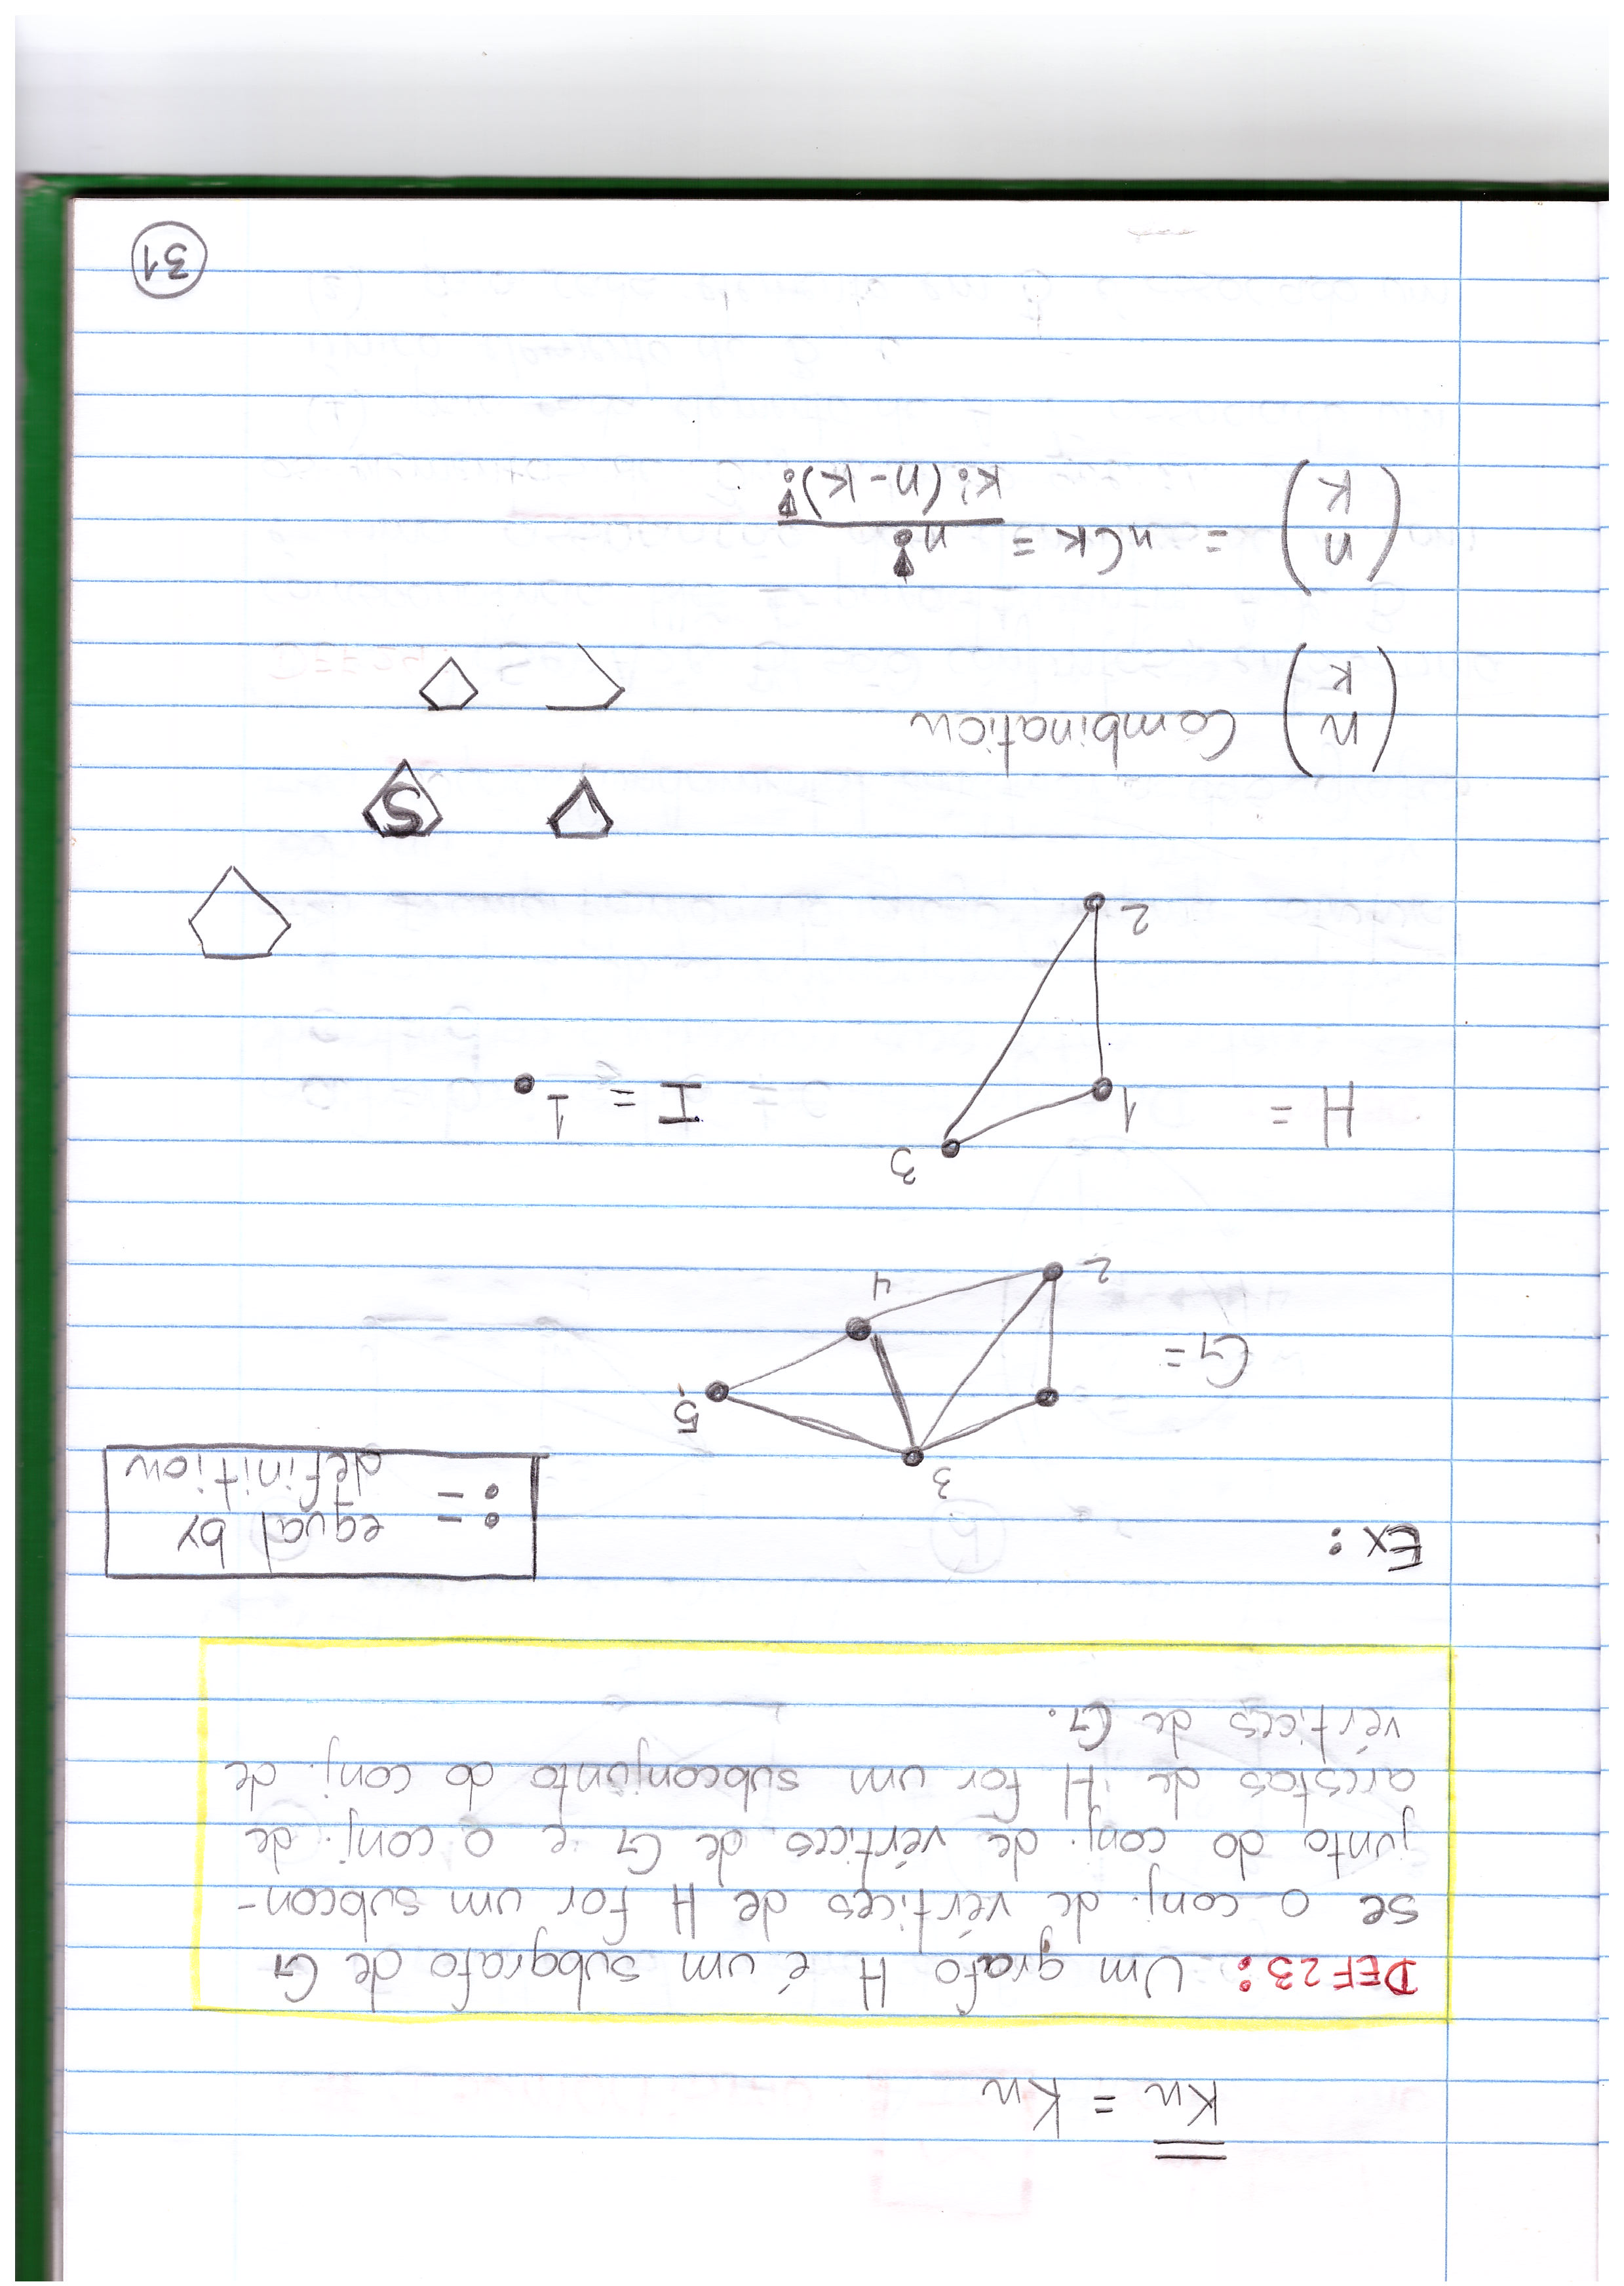 K̿n = Kn
DEF23: Um grafo H é um subgrafo de G
se o conj. de vértices de H for um subcon-
junto do conj. de vértices de G e o conj. de
arestas de H for um subconjunto do conj. de
vértices de G.
Ex:
:= equal by
definition
3
5
G=
2
4
3
H =
1
I = 1
2
S
(n k) Combination
(n k) = nCk = n! / k!(n-k)!
31